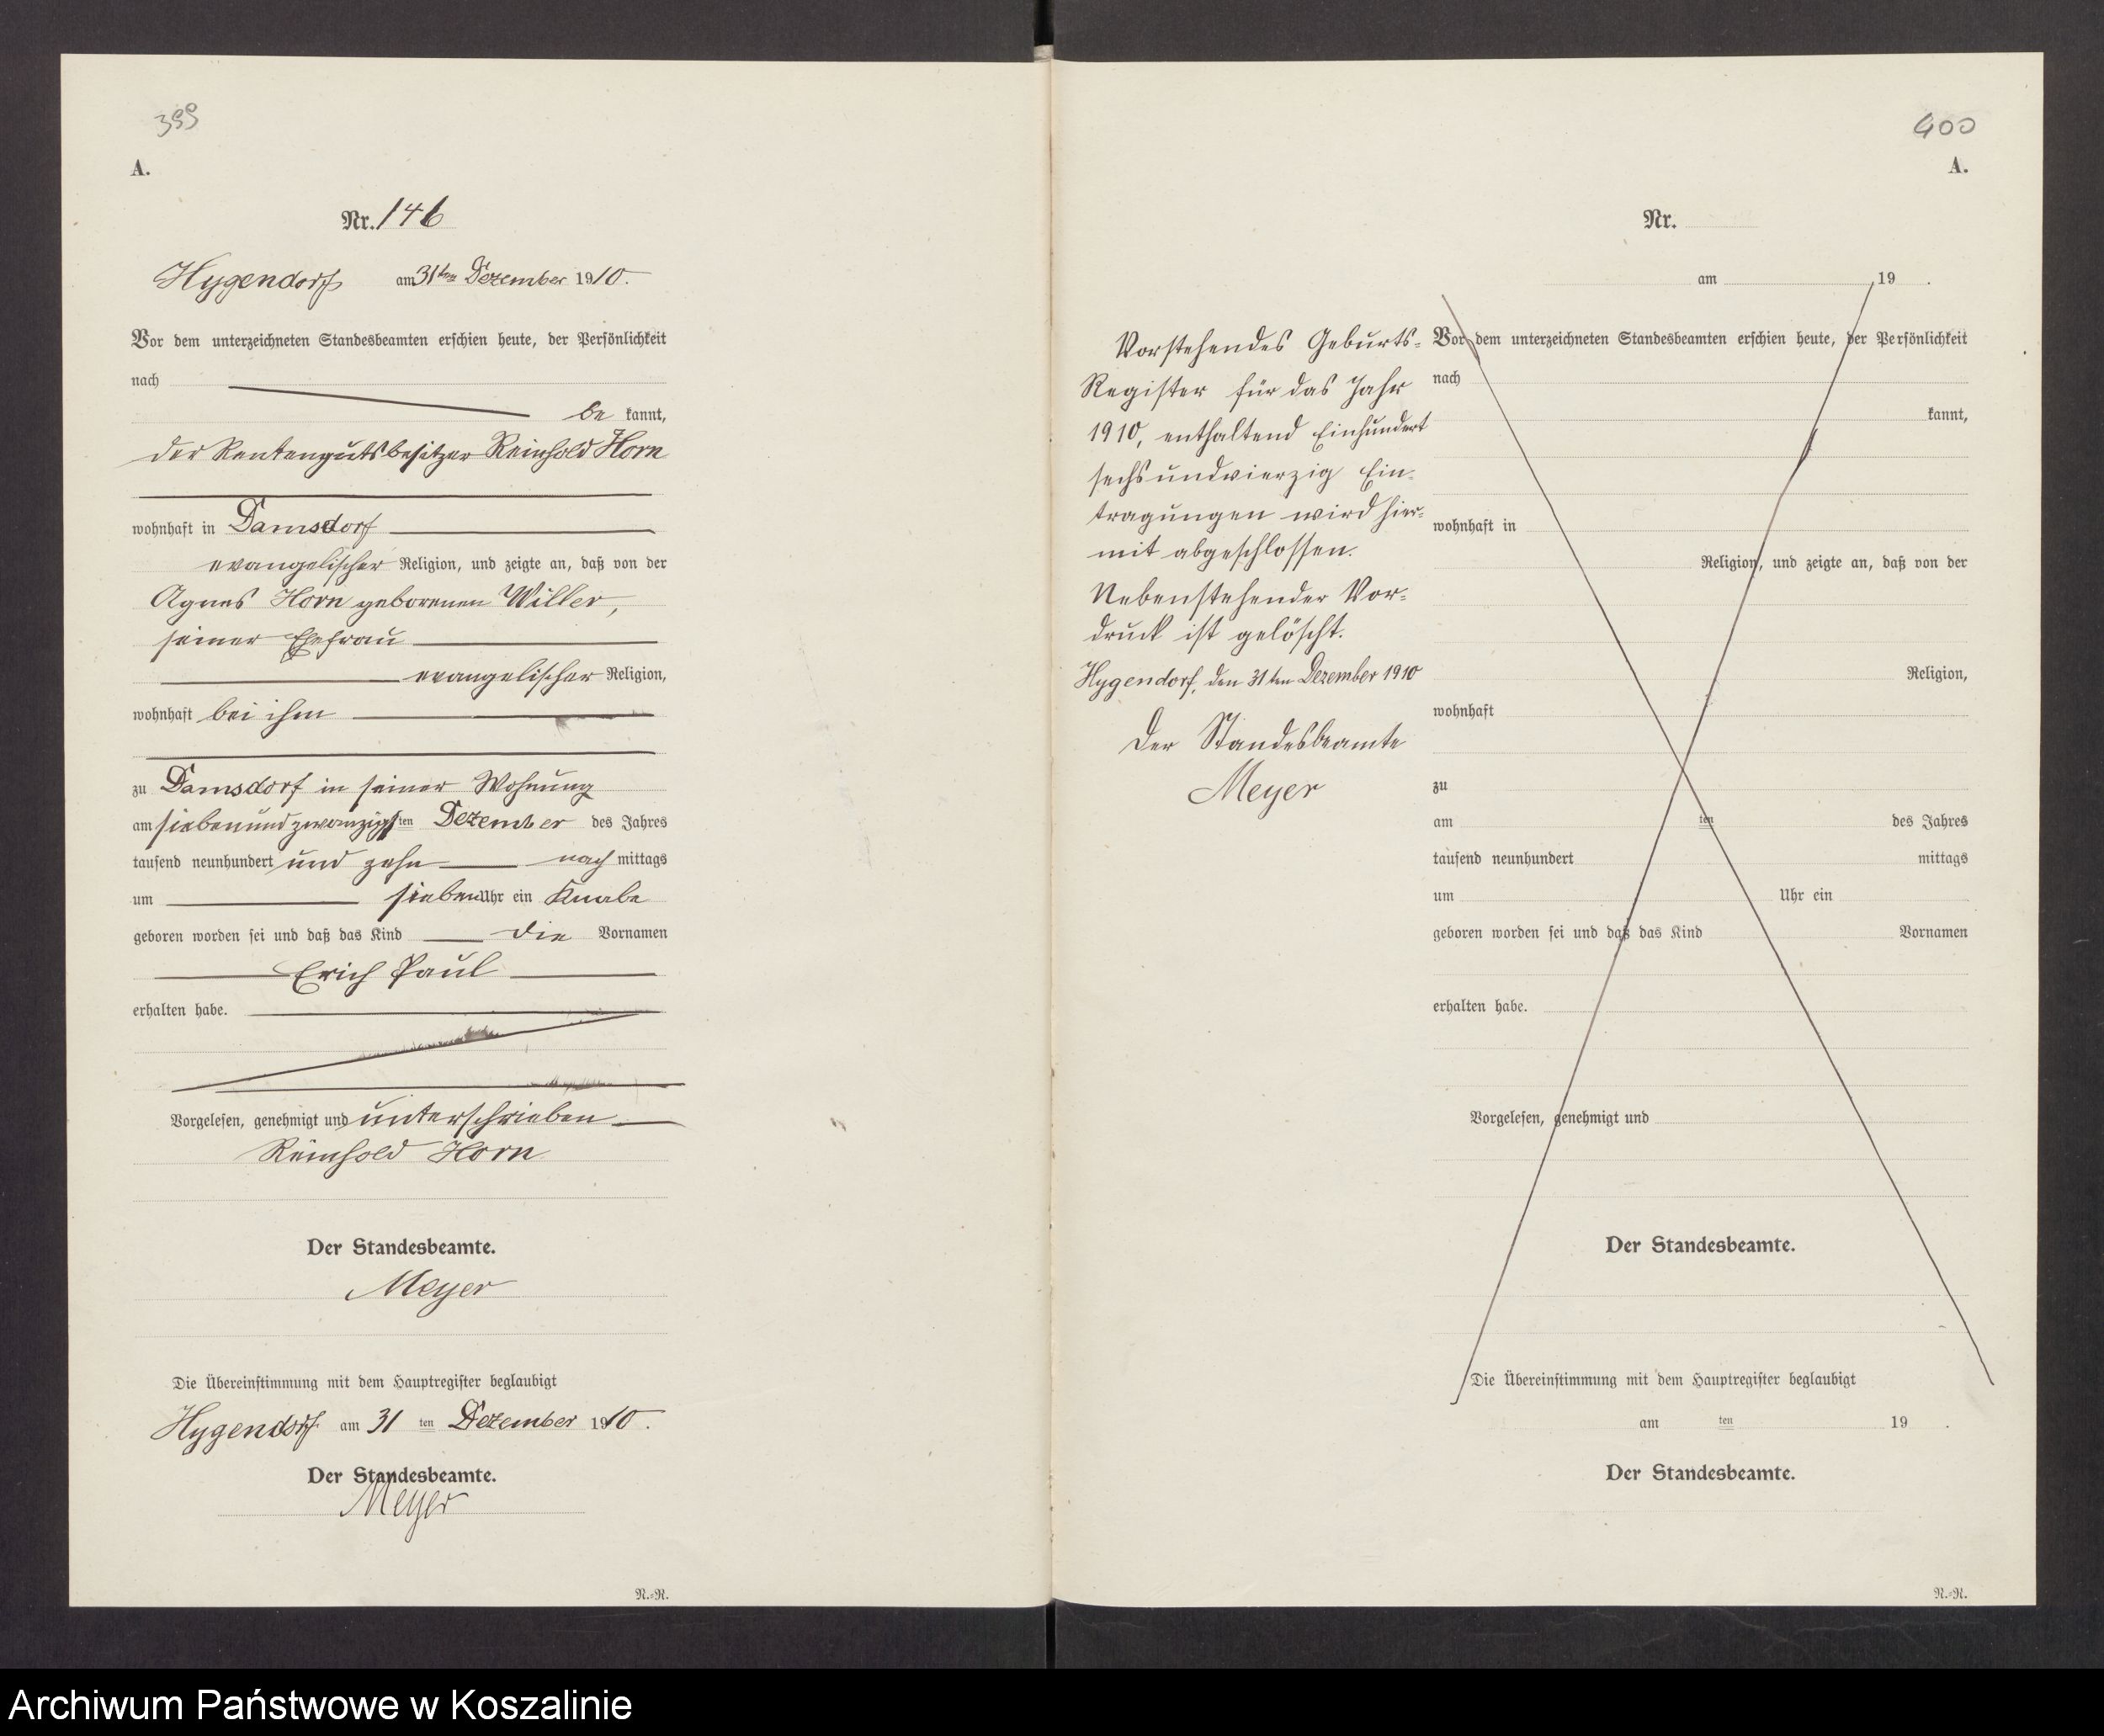 399
A.
Nr. 146
Hygendorf am 31ten Dezember 1910.
Vor dem unterzeichneten Standesbeamten erschien heute, der Persönlichkeit
nach
be kannt,
der Rentengutsbesitzer Reinhold Horn
wohnhaft in Damsdorf
evangelischer Religion, und zeigte an, daß von der
Agnes Horn geborenen Willer,
seiner Ehefrau
evangelischer Religion,
wohnhaft bei ihm
zu Damsdorf in seiner Wohnung
am siebenundzwanzigsten Dezember des Jahres
tausend neunhundert und zehn nach mittags
um sieben Uhr ein Knabe
geboren worden sei und daß das Kind die Vornamen
Erich Paul
erhalten habe.
Vorgelesen, genehmigt und unterschrieben
Reinhold Horn
Der Standesbeamte.
Meyer
Die Übereinstimmung mit dem Hauptregister beglaubigt
Hygendorf am 31 ten Dezember 1910.
Der Standesbeamte.
Meyer
N.=R.
400
A.
Vorstehendes Geburts=
Register für das Jahr
1910, enthaltend Einhundert
sechsundvierzig Ein=
tragungen wird hier=
mit abgeschlossen.
Nebenstehender Vor=
druck ist gelöscht.
Hygendorf, den 31ten Dezember 1910
Der Standesbeamte
Meyer
Nr.
am 19 .
Vor dem unterzeichneten Standesbeamten erschien heute, der Persönlichkeit
nach
kannt,
wohnhaft in
Religion, und zeigte an, daß von der
Religion,
wohnhaft
zu
am ten des Jahres
tausend neunhundert mittags
um Uhr ein
geboren worden sei und daß das Kind Vornamen
erhalten habe.
Vorgelesen, genehmigt und
Der Standesbeamte.
Die Übereinstimmung mit dem Hauptregister beglaubigt
am ten 19 .
Der Standesbeamte.
N.=R.
Archiwum Państwowe w Koszalinie